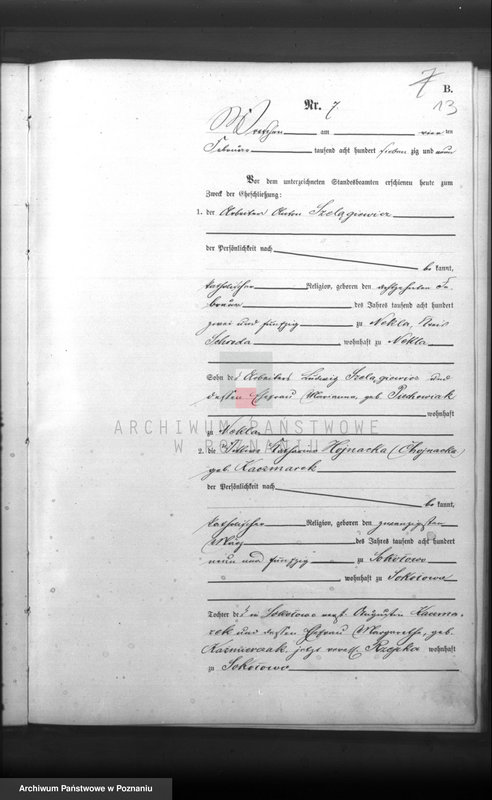 7
B.
13
Nr. 7
Wreschen am vier ten
Februar tausend acht hundert sieben zig und neun
Vor dem unterzeichneten Standesbeamten erschienen heute zum
Zweck der Eheschließung:
1. der Arbeiter Anton Szelągiewicz
der Persönlichkeit nach
be kannt,
katholischer Religion, geboren den achtzehnten Fe-
bruar des Jahres tausend acht hundert
zwei und fünfzig zu Nekla, Kreis
Schroda, wohnhaft zu Nekla
Sohn des Arbeiters Ludwig Szelągiewicz und
dessen Ehefrau Marianna, geb. Puchowiak
wohnhaft
zu Nekla
ARCHIWUM PAŃSTWOWE
W POZNANIU
2. die Wittwe Katharina Hojnacka (Chojnacka)
geb. Kaczmarek
der Persönlichkeit nach
be kannt,
katholischer Religion, geboren den zwanzigsten
März des Jahres tausend acht hundert
neun und fünfzig zu Sokołowo
wohnhaft zu Sokołowo
Tochter des in Sokołowo verst. Augustin Kaczma-
rek und dessen Ehefrau Margarethe, geb.
Kaźmierczak, jetzt Rzepka wohnhaft
zu Sokołowo
Archiwum Państwowe w Poznaniu